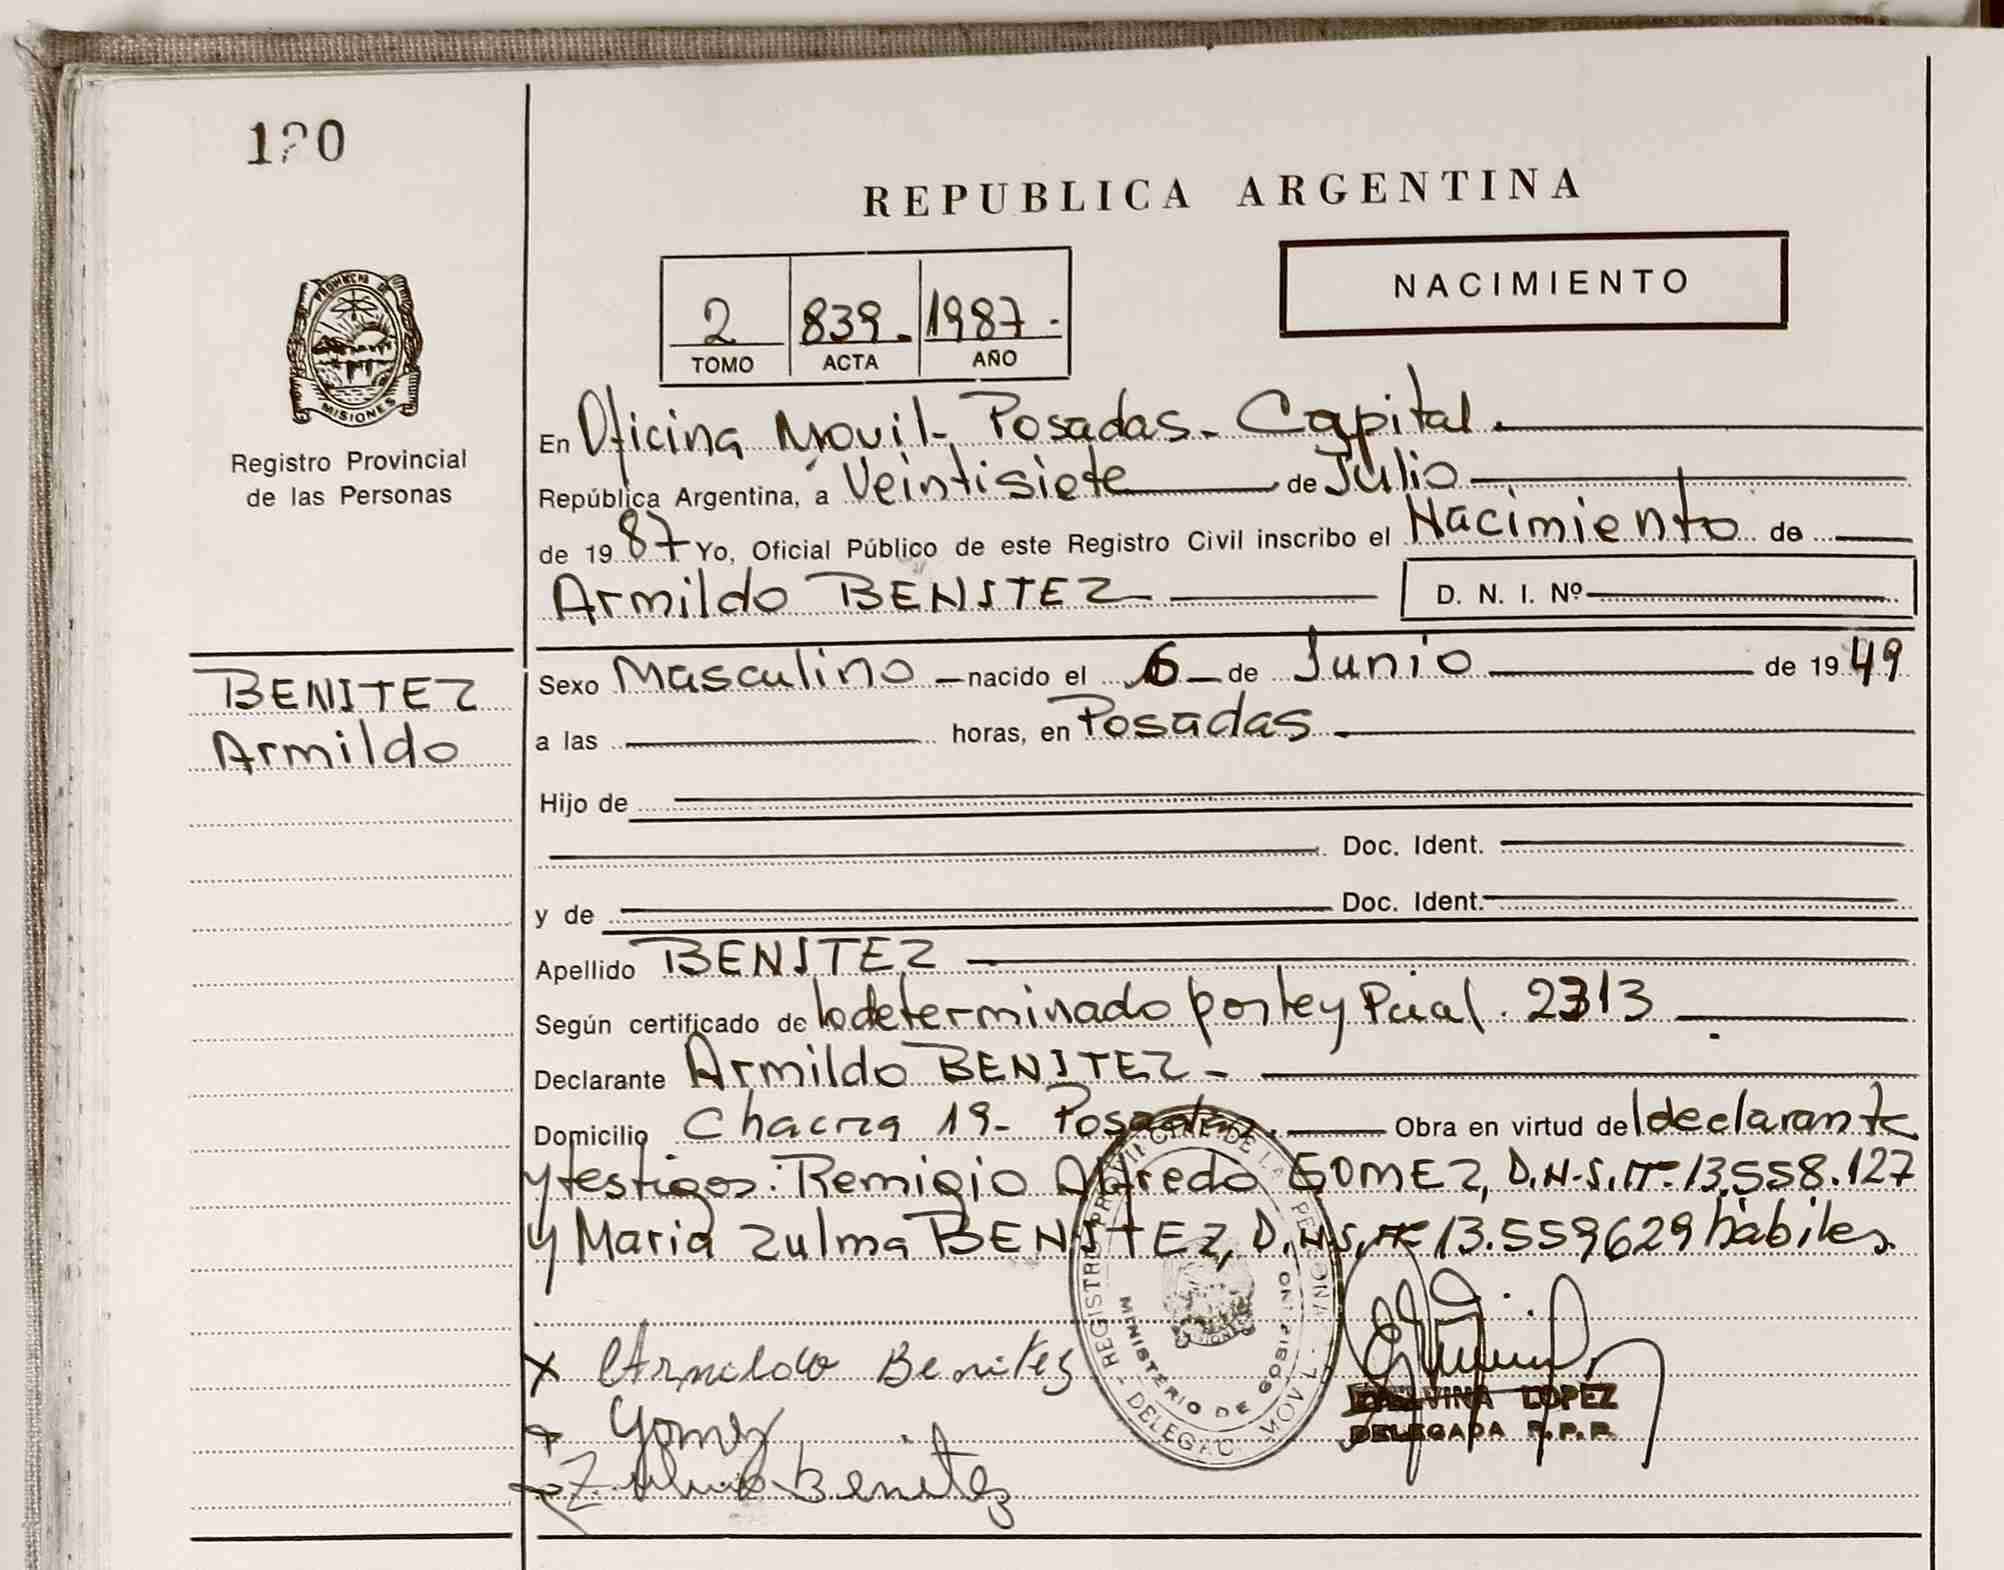 120
REPUBLICA ARGENTINA
NACIMIENTO
2 839. 1987.
TOMO ACTA AÑO
PROVINCIA DE
MISIONES
Registro Provincial
de las Personas
En Oficina Movil- Posadas- Capital.
República Argentina, a Veintisiete de Julio
de 1987 Yo, Oficial Público de este Registro Civil inscribo el Nacimiento de
Armildo BENITEZ D. N. I. Nº
BENITEZ
Armildo
Sexo Masculino nacido el 6 de Junio de 1949
a las horas, en Posadas
Hijo de
Doc. Ident.
y de Doc. Ident.
Apellido BENITEZ
Según certificado de lo determinado por Ley Pcial. 2313
Declarante Armildo BENITEZ-
Domicilio Chacra 19- Posadas. Obra en virtud del declarante
y testigos: Remigio Alfredo GOMEZ, D.N.I. Nº 13.558.127
y Maria Zulma BENITEZ, D.N.I. Nº 13.559629 hábiles.
REGISTRO PROVINCIAL DE LAS PERSONAS
MINISTERIO DE GOBIERNO
DELEGAC. MOVIL
x Armildo Benitez
x Gomez
x Zulma Benitez
LOPEZ
DELEGADA R.P.P.